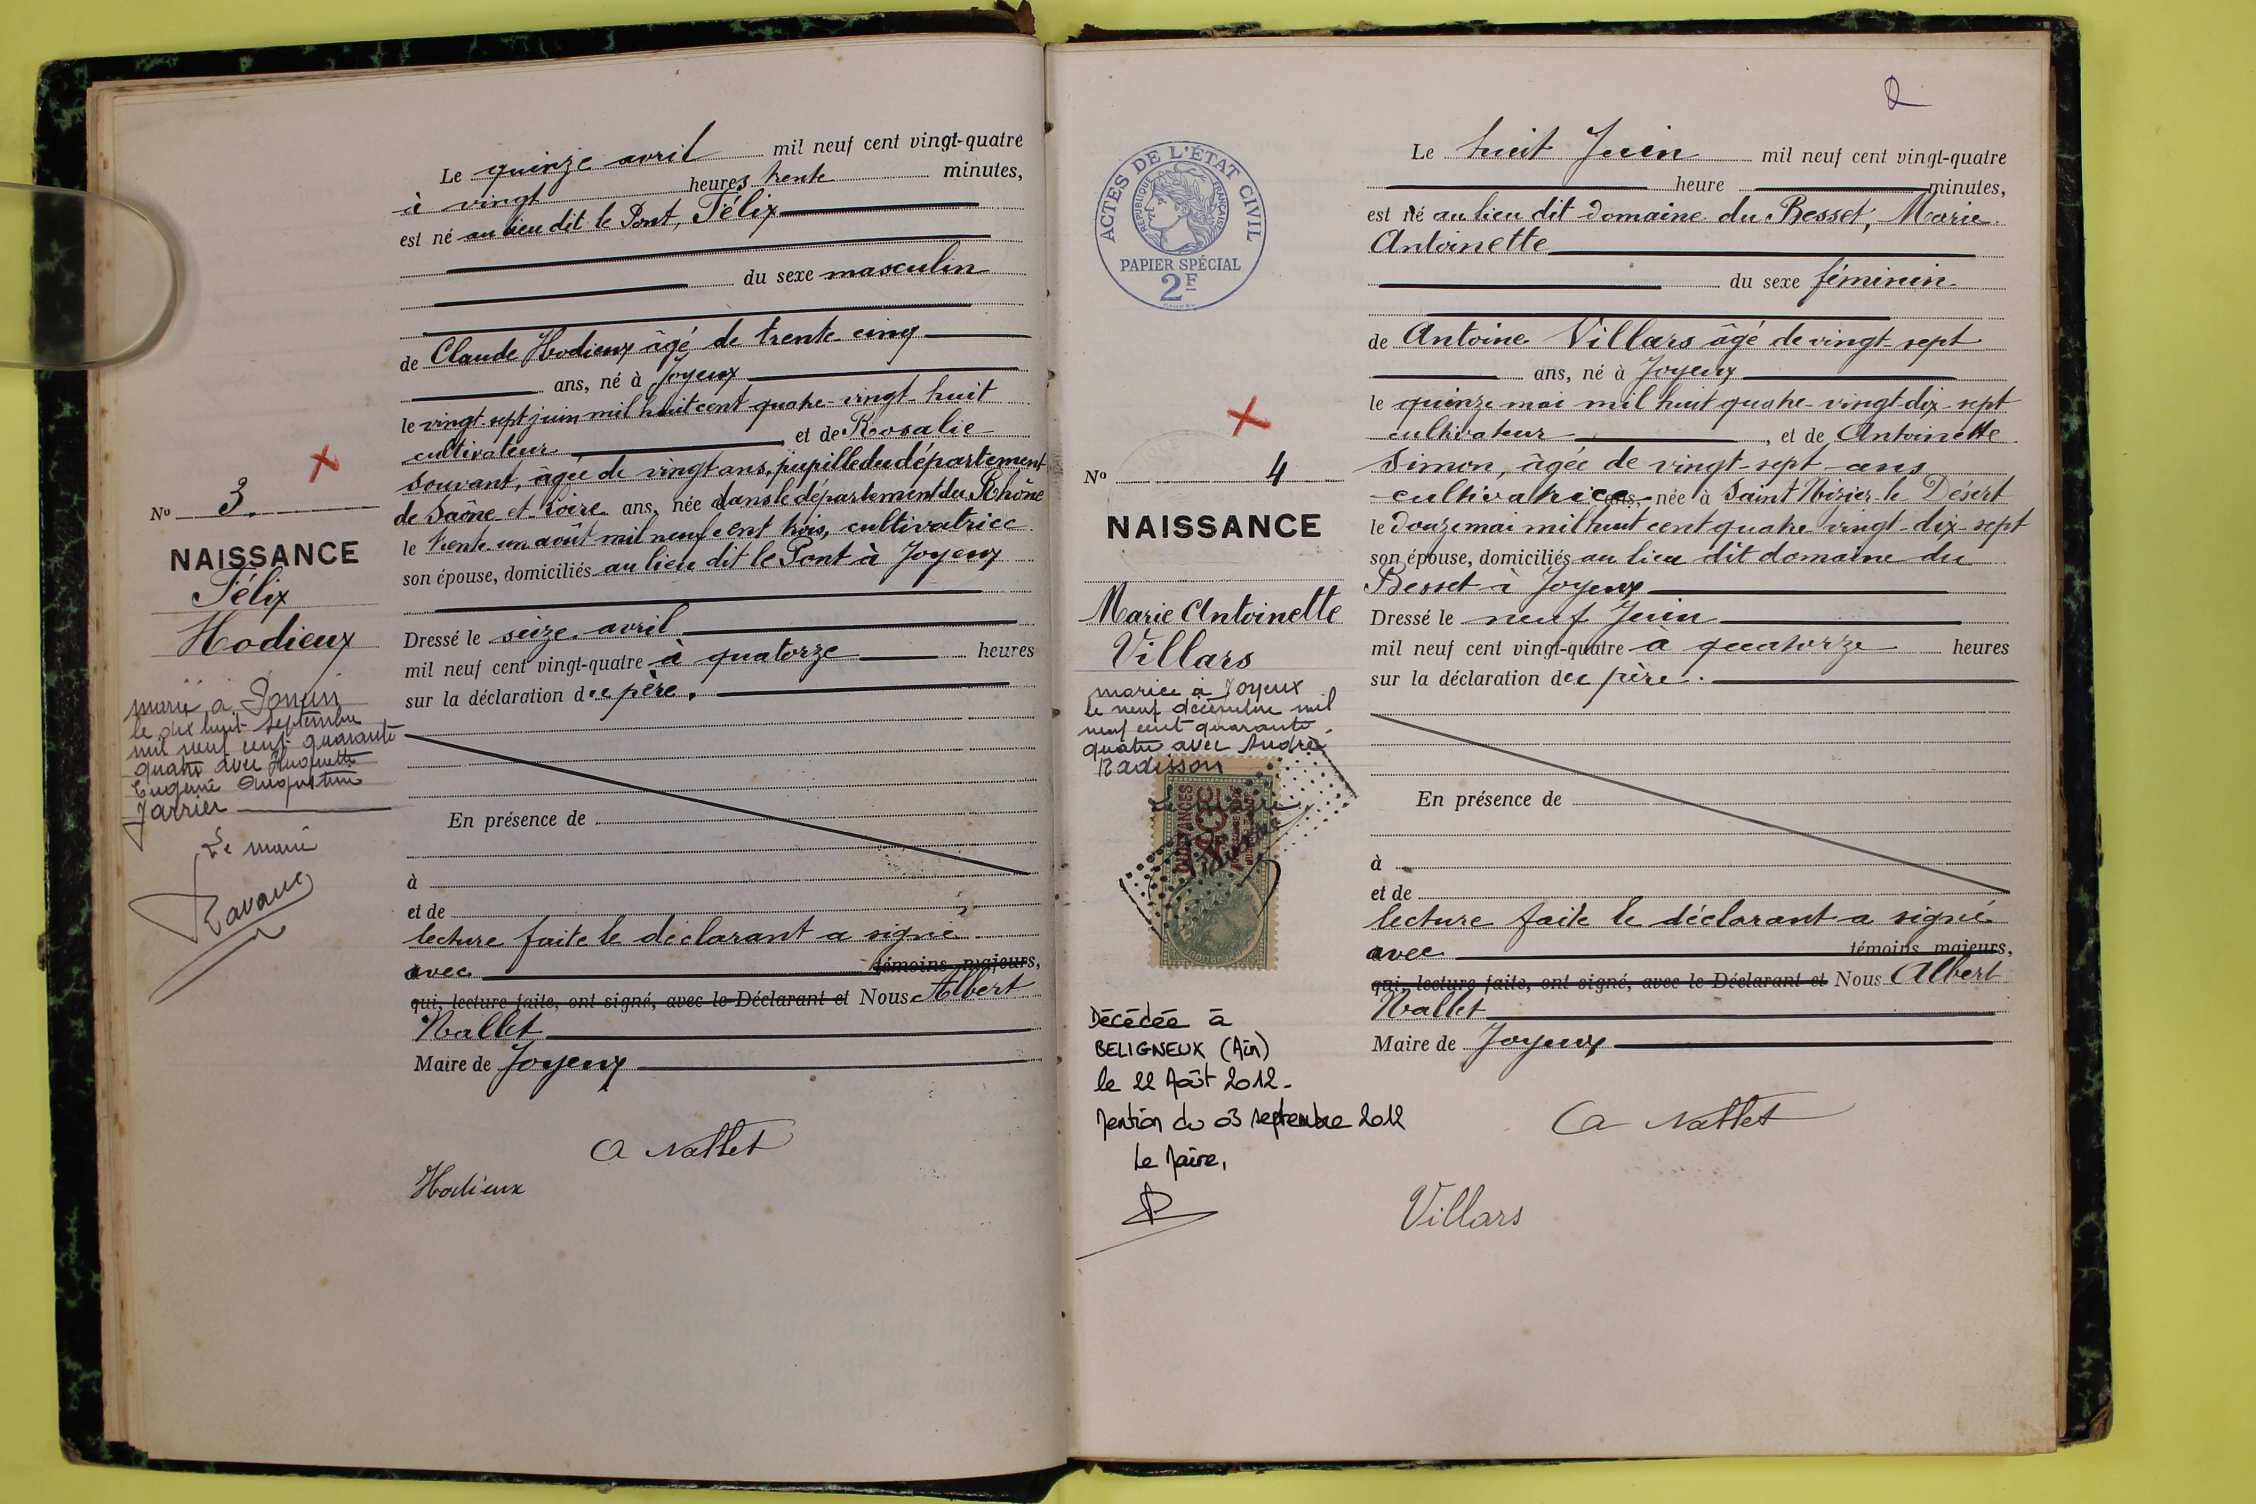 Le quinze avril mil neuf cent vingt-quatre
à vingt heures trente minutes,
est né au lieu dit le Pont, Félix
du sexe masculin
de Claude Hodieux âgé de trente cinq
ans, né à Joyeux
le vingt sept juin mil huit cent quatre-vingt-huit
cultivateur et de Rosalie
Souvant, âgée de vingt ans, pupille du département
de Saône et Loire ans, née dans le département du Rhône
le trente un août mil neuf cent trois, cultivatrice
son épouse, domiciliés au lieu dit le Pont à Joyeux
Dressé le seize avril
mil neuf cent vingt-quatre à quatorze heures
sur la déclaration du père.
En présence de
à
et de
lecture faite le déclarant a signé
avec témoins majeurs,
qui, lecture faite, ont signé, avec le Déclarant et Nous Albert
Nallet
Maire de Joyeux
A Nallet
Hodieux
No 3.
NAISSANCE
Félix
Hodieux
marié à
le dix huit septembre
mil neuf cent quarante
quatre avec Huguette
Eugénie Augustine
Jarrier
Le maire
2
ACTES DE L'ÉTAT CIVIL
RÉPUBLIQUE FRANÇAISE
PAPIER SPÉCIAL
2F
No 4
NAISSANCE
Marie Antoinette
Villars
mariée à Joyeux
le neuf décembre mil
neuf cent quarante
quatre avec André
Radisson
Décédée à
BELIGNEUX (Ain)
le 22 Août 2012.
Mention du 03 septembre 2012
Le Maire,
Le huit Juin mil neuf cent vingt-quatre
heure minutes,
est né au lieu dit domaine du Besset, Marie
Antoinette
du sexe féminin
de Antoine Villars âgé de vingt sept
ans, né à Joyeux
le quinze mai mil huit quatre-vingt dix-sept
cultivateur, et de Antoinette
Simon, âgée de vingt-sept ans
cultivatrice ans, née à Saint Nizier le Désert
le douze mai mil huit cent quatre-vingt-dix-sept
son épouse, domiciliés au lieu dit domaine du
Besset à Joyeux
Dressé le neuf Juin
mil neuf cent vingt-quatre à quatorze heures
sur la déclaration du père.
En présence de
à
et de
lecture faite le déclarant a signé
avec témoins majeurs,
qui, lecture faite, ont signé, avec le Déclarant et Nous Albert
Nallet
Maire de Joyeux
A Nallet
Villars